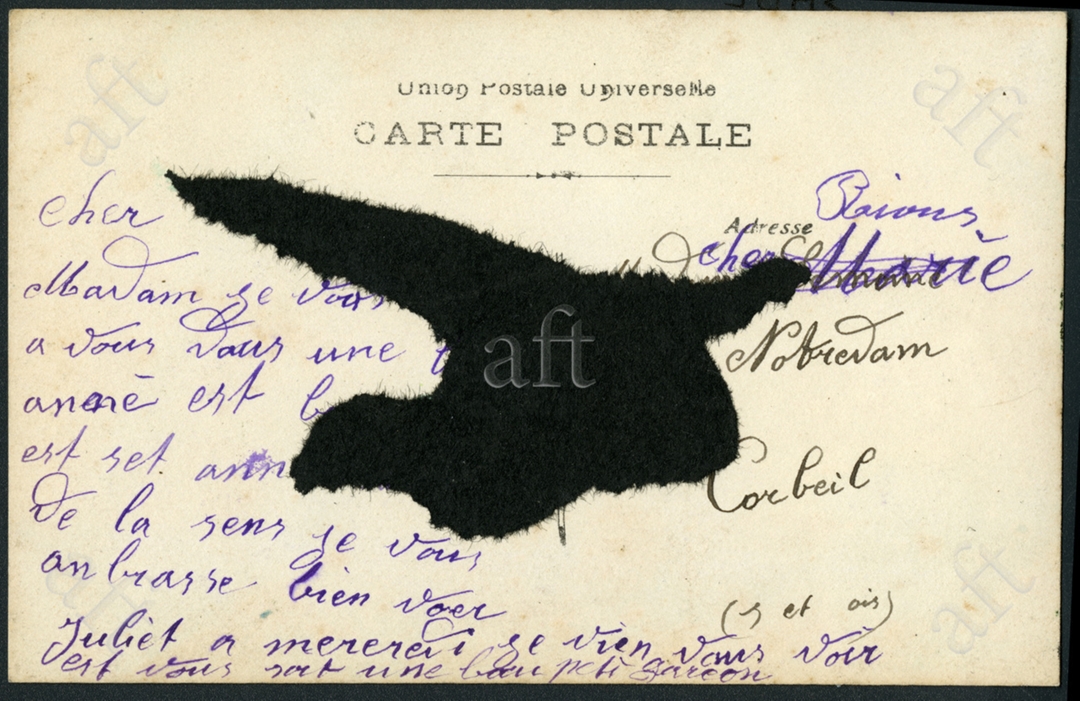 Union Postale Universelle
CARTE POSTALE
Adresse
Cher
Madam je vous
a vous vous une
anneè est
est set ann
De la sens je vous
anbrasse bien voer
Juliet a mereredi je vien vous voir
est vous sot une bau peti garcon
cher Marie
Notredam
Corbeil
(S et ois)
aft
aft
aft
aft
aft
aft